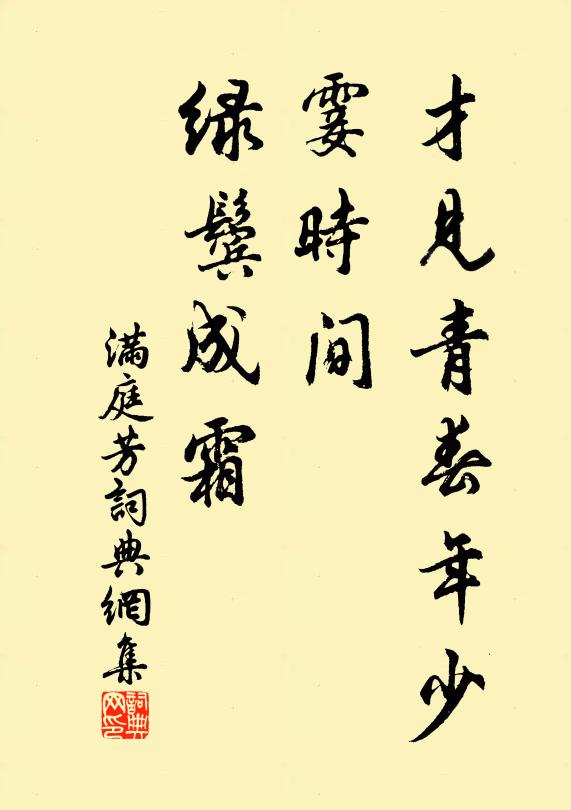 才見青春年少
霎時間
綠鬢成霜
滿庭芳詞典網集
詞典
网印